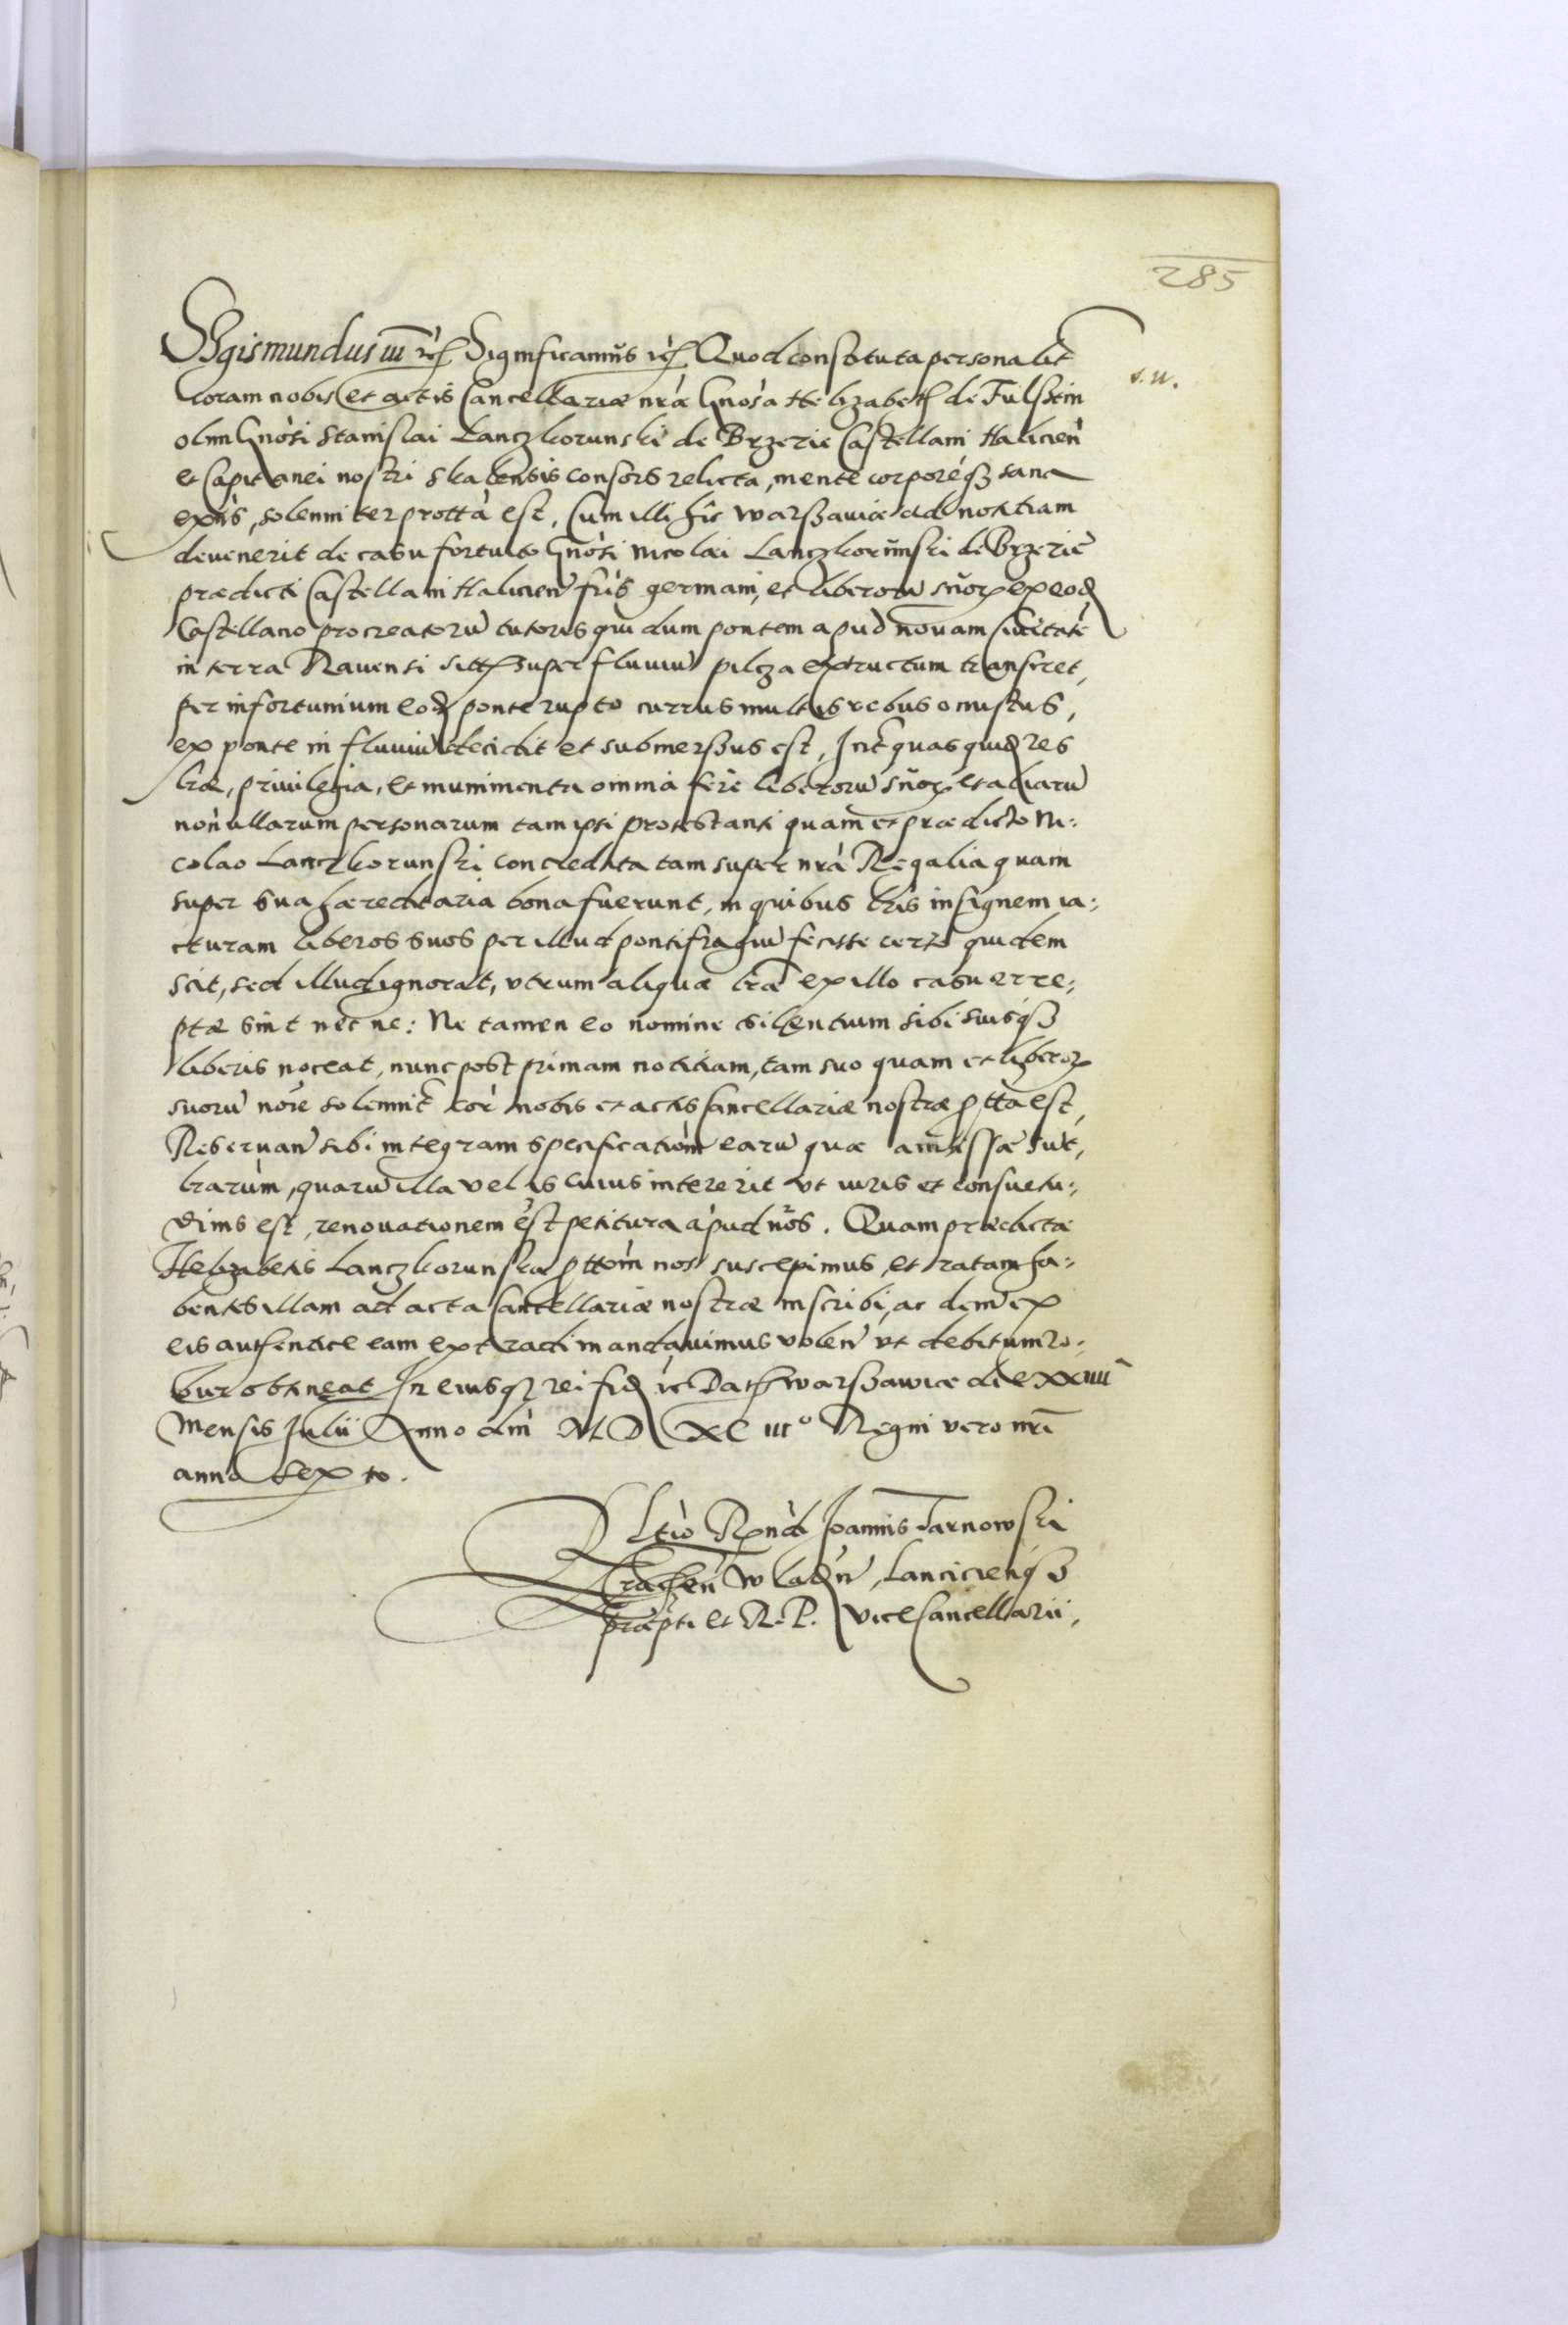 285
Sigismundus III etc. Significamus etc. Quod constituta personalit
s. n.
coram nobis et actis Cancellariæ nræ Gnosa Helizabeth de Fulstein
olim Gnosi Stanislai Lanczkorunski de Brzezie Castellani Halicien
et Capitanei nostri Skalensis consors relicta, mente corporeq3 sana
exns, solenniter protta est, Cum illi hic Warszaviæ ad notitiam
devenerit de casu fortuito Gnosi Nicolai Lanczkorunski de Brzezie
prædicti Castellani Halicien fris germani, et liberorū suor ex eod
Castellano procreatorū tutoris qui dum pontem apud novam Civitatē
in terra Ravensi sitt super fluviū pilcza extructum transiret,
per infortunium eod ponte rupto currus multis rebus onustus,
ex ponte in fluviū decidit et submersus est, Int quas quid res
lræ, privilegia, et munimenta omnia fere liberorū suor et aliarū
nonullarum personarum tam ipsi protestanti quam et prædicto Ni:
colao Lanczkorunski concredita tam super nra Regalia quam
super sua hæreditaria bona fuerunt, in quibus lris insignem ia:
cturam liberos suos per illud pontifragiū fecisse certo quidem
scit, sed illud ignorat, utrum aliquæ lræ ex illo casu erre:
ptæ sint nec ne: Ne tamen eo nomine silentium sibi suisq3
liberis noceat, nunc post primam notitiam, tam suo quam et liberor
suorū noie solennit cor nobis et actis Cancellariæ nostræ ptta est,
Reservan sibi integram specificationem earū quæ amissæ sūt,
lrarum, quarū illa vel is cuius intererit ut iuris et consuetu:
dinis est, renovationem est petitura apud nos. Quam prædictæ
Helizabetis Lanczkorunska pttom nos suscepimus, et ratam ha:
bentes illam ad acta Cancellariæ nostræ inscribi, ac dem ex
eis authentice eam extradi mandavimus volen ut debitum ro:
bur obtineat In cuiusq3 rei fid etc Dat Warszawiæ die XXIIII
Mensis Julii Anno dni M D XC III° Regni vero nri
anno sexto.
Rltio Rndi Joannis Tarnowski
Cracen Wladn, Lancicienq3
præpti et R. P. Vicecancellarii,